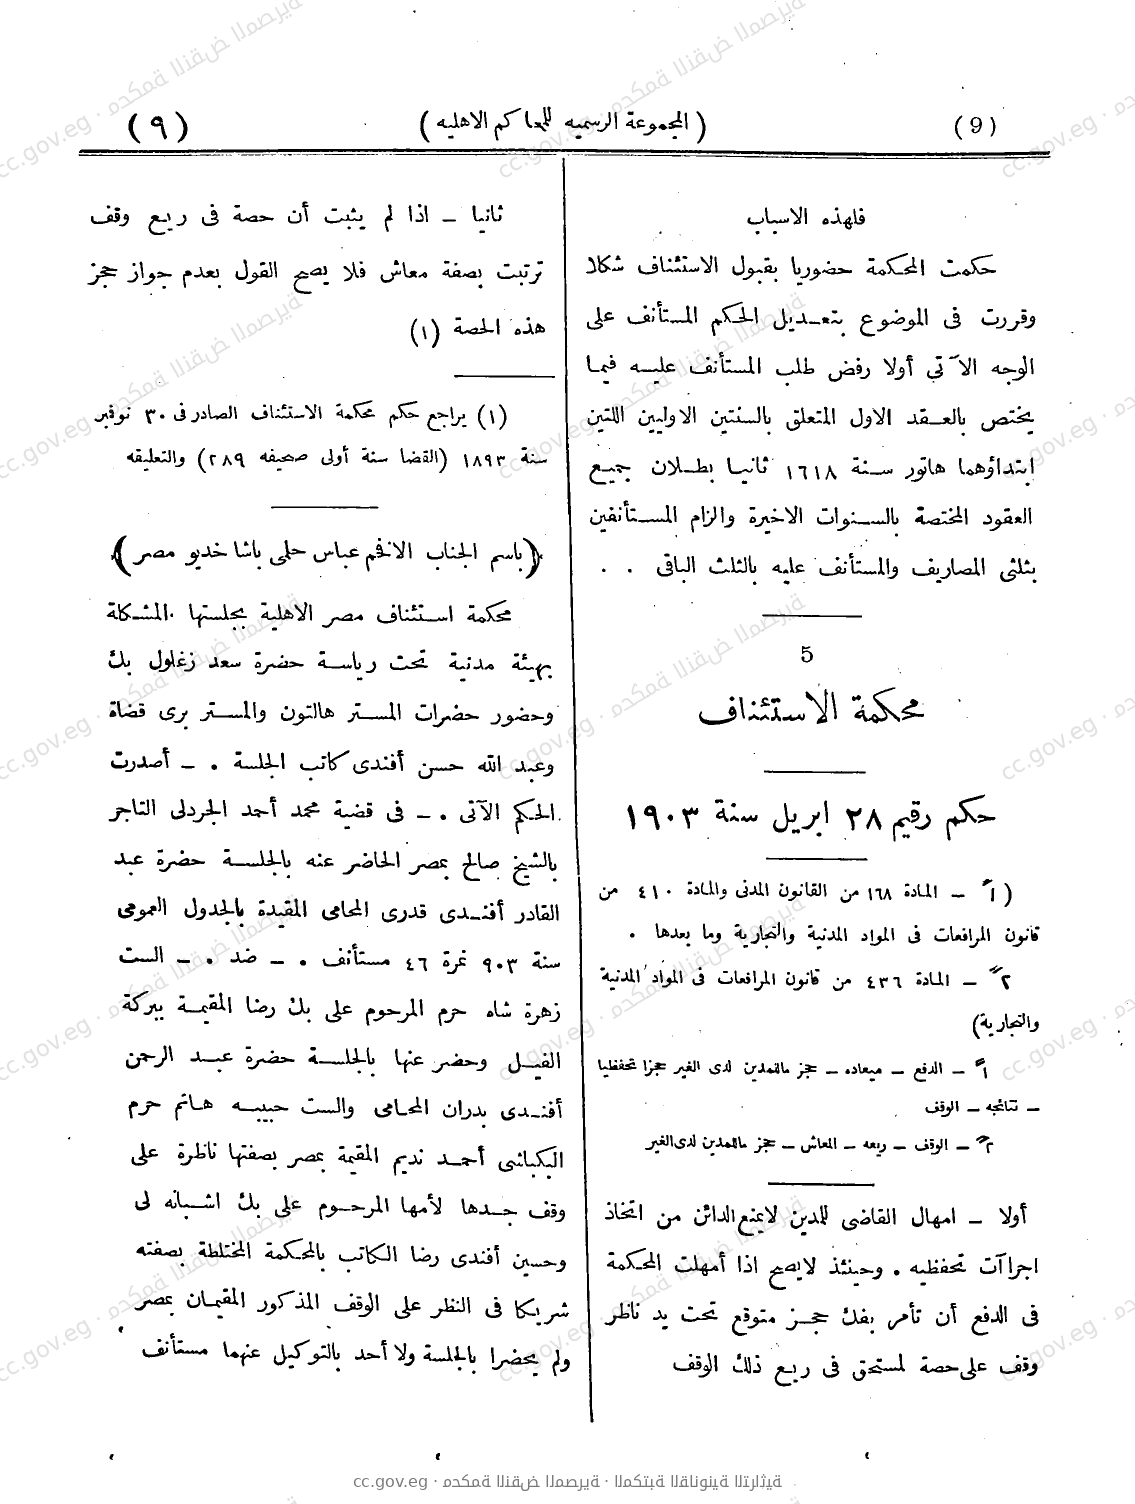 (9) (المجموعة الرسميه للمحاكم الاهليه) (٩)
فلهذه الاسباب
حكمت المحكمة حضوريا بقبول الاستئناف شكلا
وقررت فى الموضوع بتعـديل الحكم المستأنف على
الوجه الآتي أولا رفض طلب المستأنف عليـه فيما
يختص بالعـقد الاول المتعلق بالسنتين الاوليين اللتين
ابتداؤهما هاتور سـنة ١٦١٨ ثانيـا بطـلان جميـع
العقود المختصة بالسـنوات الاخيرة والزام المسـتأنفين
بثلثى المصاريف والمستأنف عليه بالثلث الباقى . .
5
محكمة الاستئناف
حكم رقيم ٢٨ ابريل سنة ١٩٠٣
(١ً – المادة ١٦٨ من القانون المدنى والمادة ٤١٠ من
قانون المرافعات فى المواد المدنية والتجارية وما بعدها .
٢ً – المادة ٤٣٦ من قانون المرافعات فى المواد المدنية
والتجارية)
١ً – الدفع – ميعاده – حجز ماللمدين لدى الغير حجزا تحفظيا
– نتائجه – الوقف
٢ً – الوقف – ريعه – المعاش – حجز ماللمدين لدى الغير
أولا – امهال القاضى للمدين لايمنع الدائن من اتخاذ
اجراآت تحفظيه . وحينئذ لايصح اذا أمهلت المحكمة
فى الدفع أن تأمر بفك حجـز متوقع تحت يد ناظر
وقف على حصة لمستحق فى ريع ذلك الوقف
ثانيا – اذا لم يثبت أن حصة فى ريع وقف
ترتبت بصفة معاش فلا يصح القول بعدم جواز حجز
هذه الحصة (١)
(١) يراجع حكم محكمة الاستئناف الصادر فى ٣٠ نوفمبر
سنة ١٨٩٣ (القضا سنة أولى صحيفه ٢٨٩) والتعليقه
(باسم الجناب الافخم عباس حلمى باشا خديو مصر)
محكمة استئناف مصر الاهلية بجلستها المشكلة
بهيئة مدنية تحت رياسـة حضرة سعد زغلول بك
وحضور حضرات المستر هالتون والمستر برى قضاة
وعبد الله حسن أفندى كاتب الجلسة . – أصدرت
الحكم الآتى . – فى قضية محمد أحمد الجردلى التاجر
بالشيخ صالح بمصر الحاضر عنه بالجلسـة حضرة عبد
القادر أفنـدى قدرى المحامى المقيدة بالجدول العمومى
سنة ٩٠٣ نمرة ٤٦ مستأنف . – ضد . – الست
زهرة شاه حرم المرحوم على بك رضا المقيمـة ببركة
الفيـل وحضر عنها بالجلسـة حضرة عبـد الرحمن
أفنـدى بدران المحامى والست حبيبـه هـانم حرم
البكباشى أحمـد نديم المقيمة بمصر بصفتها ناظرة على
وقف جـدها لأمها المرحـوم على بك اشـبانه لى
وحسين أفندى رضا الكاتب بالمحكمة المختلطة بصفته
شريكا فى النظر على الوقف المذكور المقيمـان بمصر
ولم يحضرا بالجلسة ولا أحد بالتوكيل عنهما مستأنف
cc.gov.eg · محكمة النقض المصرية · المكتبة القانونية التراثية